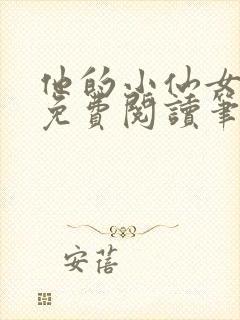 他的小仙女
免費閱讀筆
安蓓